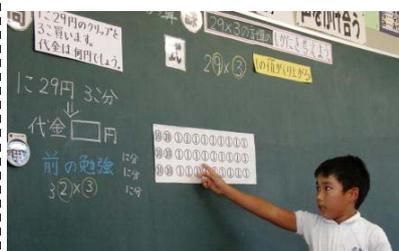 1こ29円のクリップを
3こ買います。
代金は何円でしょう。
29×3の
しかたを考えよう。
声をかけ合う
29×3
1の位がくり上がる
1こ29円 3こ分
代金□円
前の勉強
32×3
1こ分
1こ分
1こ分
⑩⑩①①①①①①①①①
⑩⑩①①①①①①①①①
⑩⑩①①①①①①①①①